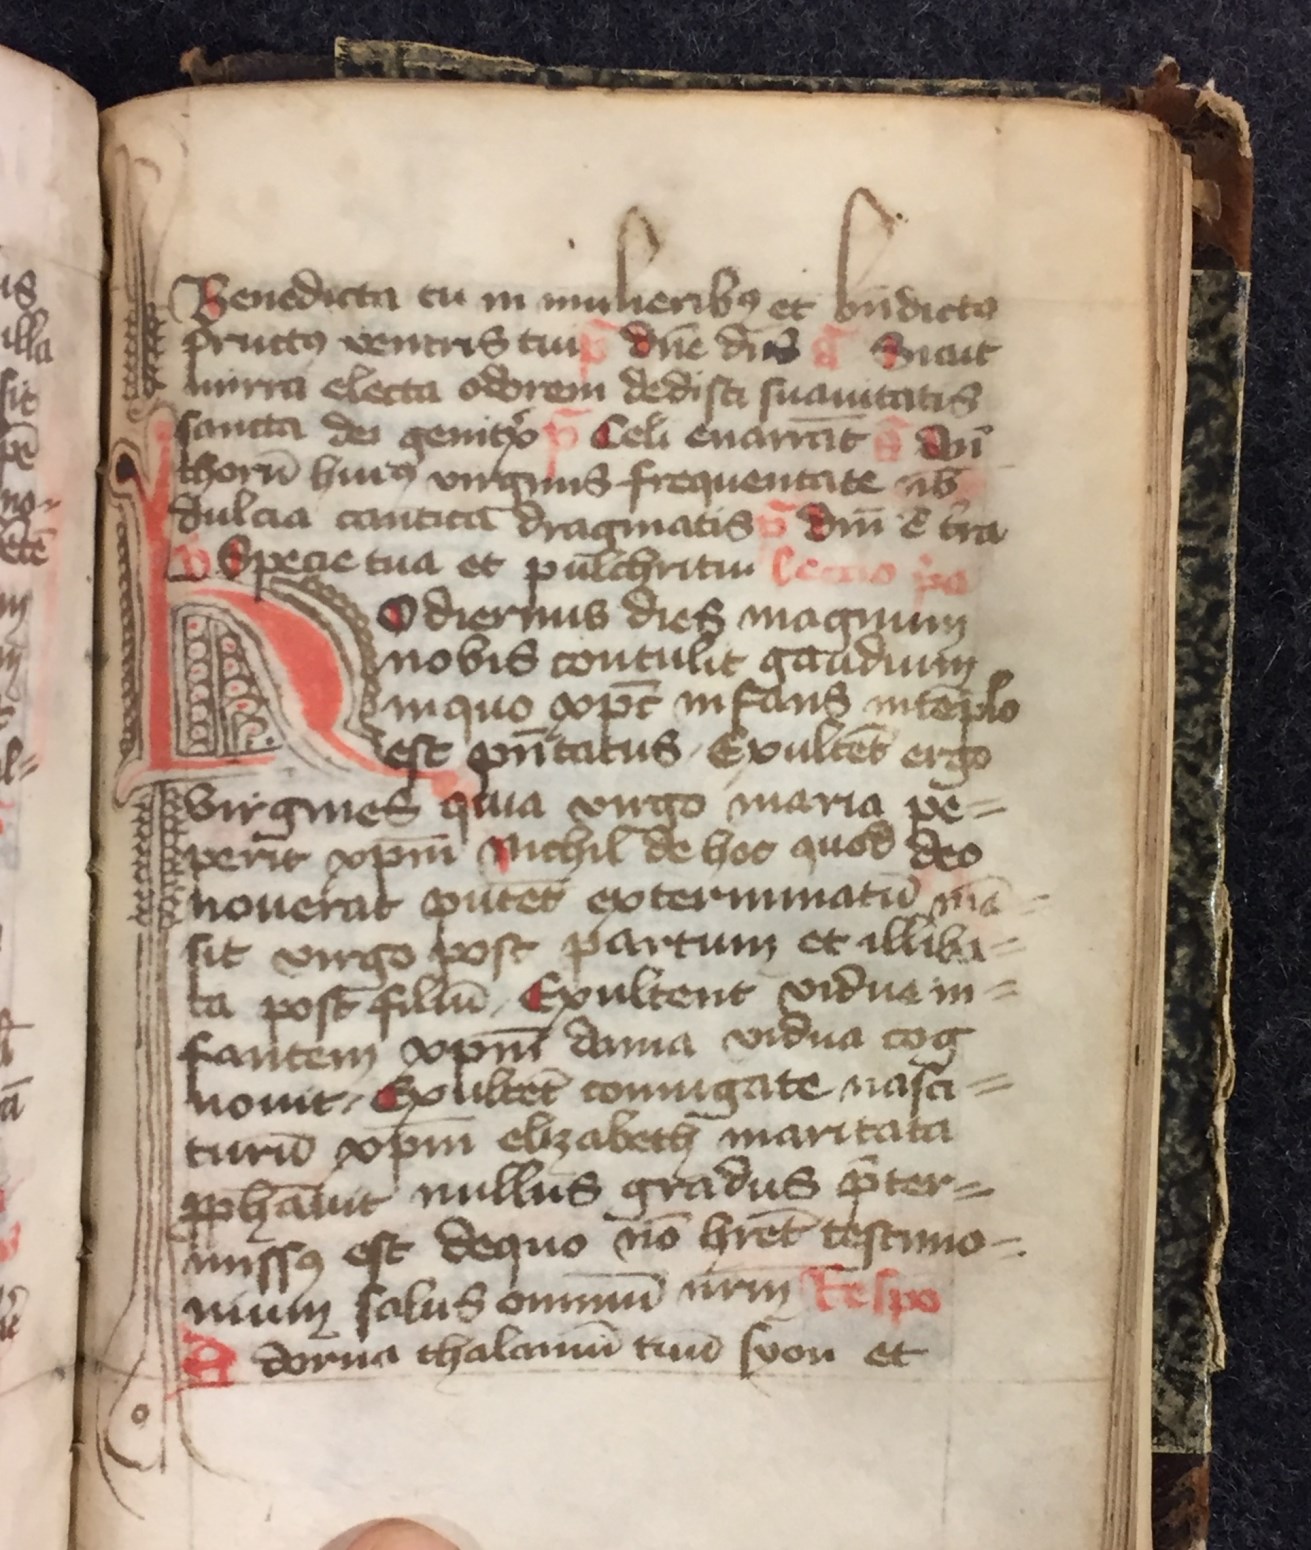 Benedicta tu in mulieribꝰ et bn̄dictꝰ
fructꝰ ventris tui p̄ Dn̄e dn̄s a̅ Sicut
mirra electa odorem dedisti suauitatis
sancta dei genitͥx p̄ Celi enarrāt a̅ An̄
thorū huiꝰ virginis frequentate nb̄
dulcia cantica dragmatis p̄ Dn̄i ē t̄ra
v̄ Specie tua et pulchritu Leccio pͥa
Hodiernus dies magnum
nobis contulit gaudium
inquo xpc̄ infans intēplo
est pn̄tatus Exultēt ergo
virgines quia virgo maria pe=
perit xpm̄ Nichil de hoc quod deo
nouerat putēt exterminatū mā=
sit virgo post partum et illiba=
ta post filiū Exultent vidue in=
fantem xpm̄ anna vidua cog
nouit Exultēt coniugate nasci=
turū xpm̄ elizabeth maritata
ꝓphauit nullus gradus p̄ter=
missꝰ est dequo nō hr̄et testimo=
nium salus omniū nr̄m Respo
Adorna thalamū tuū syon et
is
illa
sit
pē